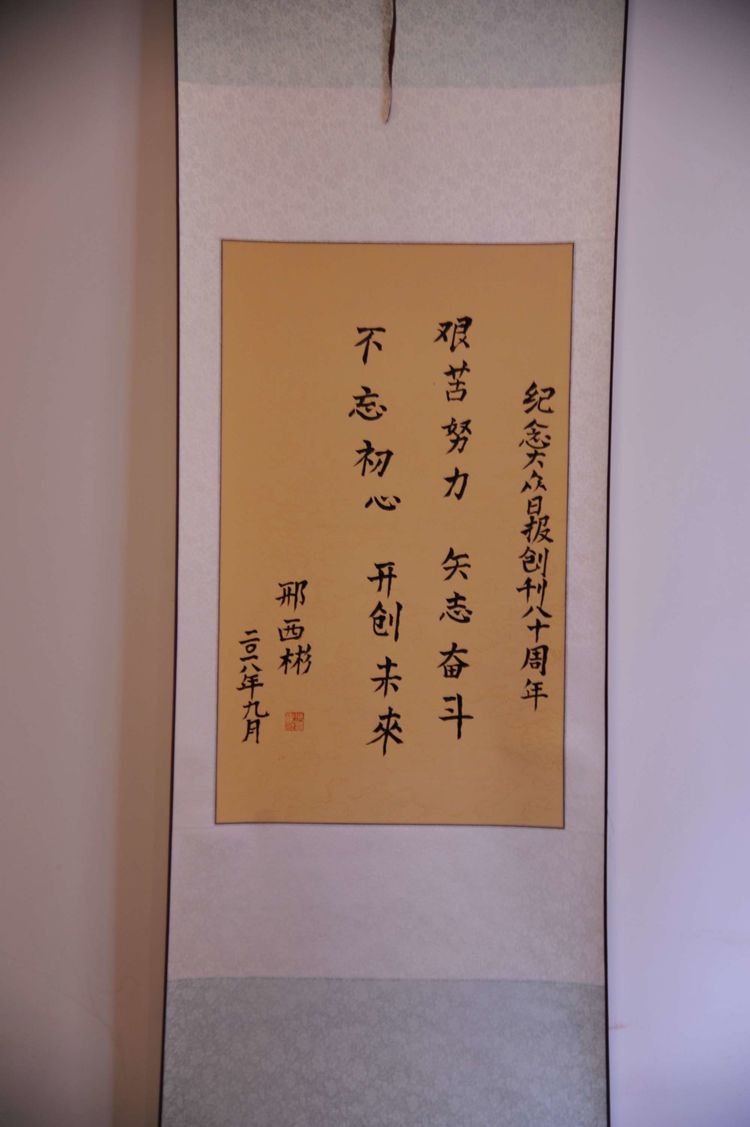 纪念大众日报创刊八十周年
艰苦努力 矢志奋斗
不忘初心 开创未來
邢西彬
二〇一八年九月